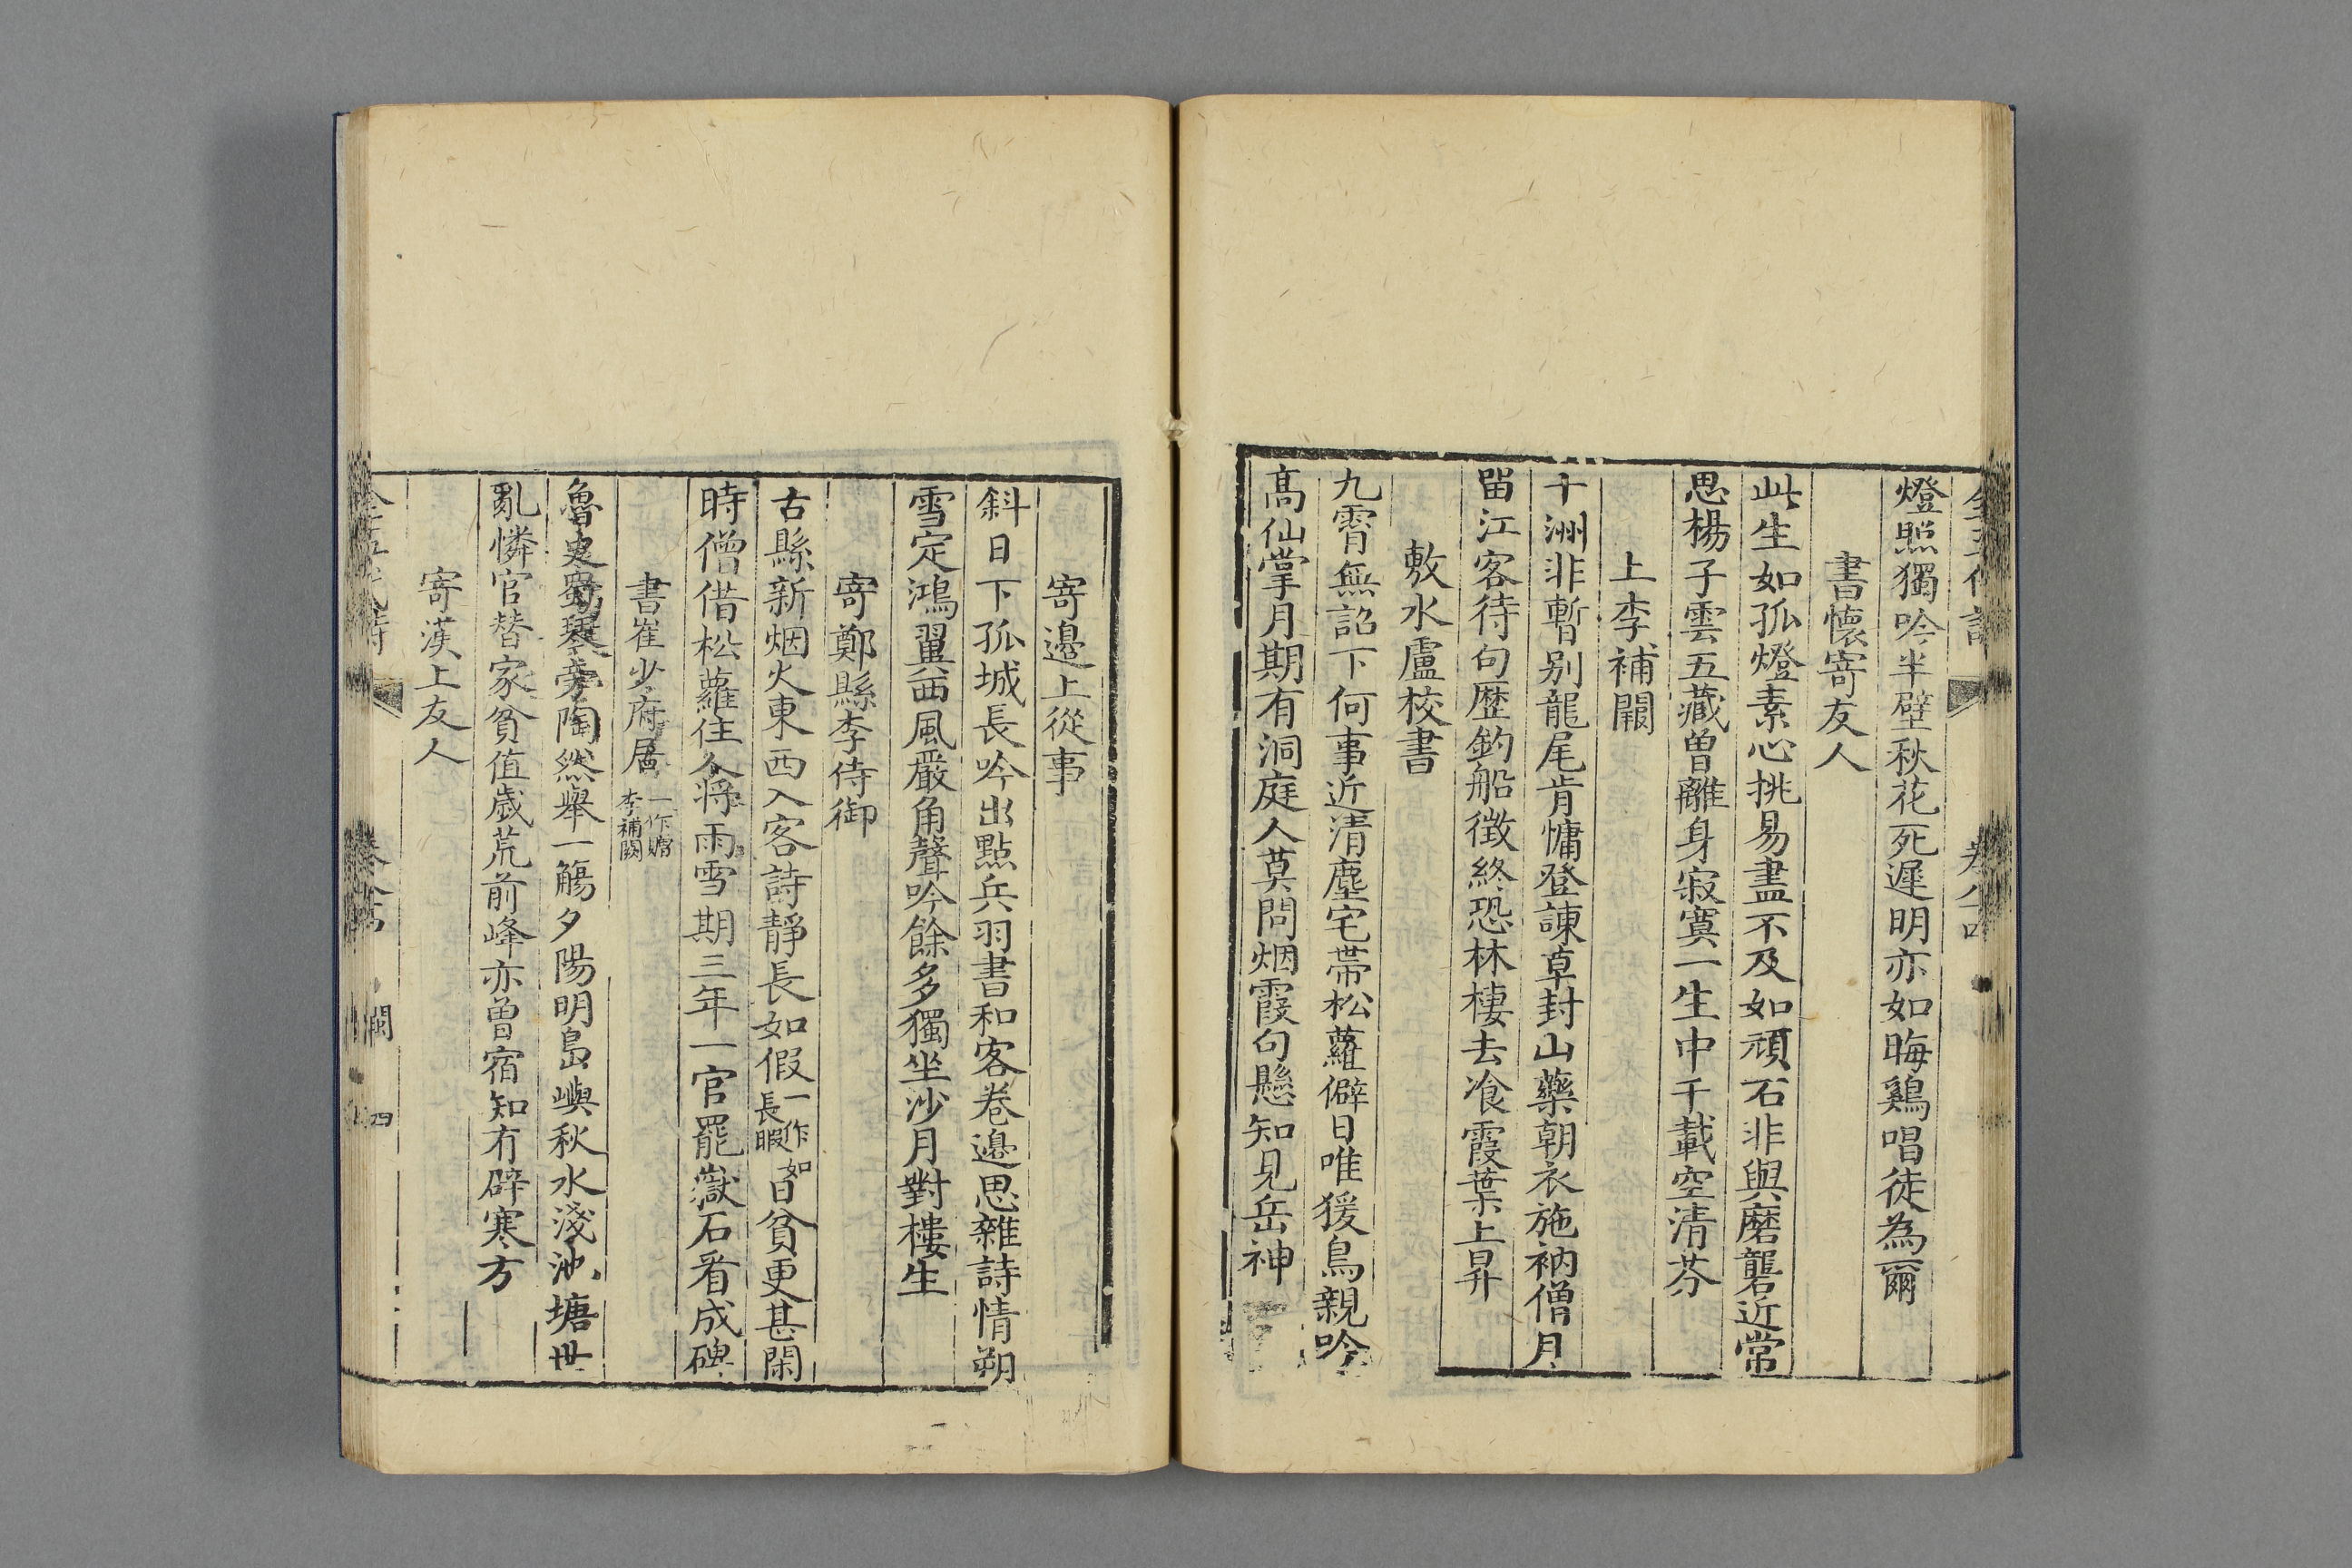 全五代詩 卷八四
燈照獨吟半壁秋花死遲明亦如晦鷄唱徒為爾
書懷寄友人
此生如孤燈素心挑易盡不及如頑石非與磨礲近常
思楊子雲五藏曽離身寂寞一生中千載空清芬
上李補闕
十洲非暫别龍尾肯慵登諫草封山藥朝衣施衲僧月
留江客待句歷釣船徵終恐林棲去飡霞葉上昇
敷水盧校書
九霄無詔下何事近清塵宅帶松蘿僻日唯猨鳥親吟
高仙掌月期有洞庭人莫問烟霞句懸知見岳神
寄邊上從事
斜日下孤城長吟出點兵羽書和客卷邊思雜詩情朔
雪定鴻翼西風嚴角聲吟餘多獨坐沙月對樓生
寄鄭縣李侍御
古縣新烟火東西入客詩靜長如假一作如長暇日貧更甚閑
時僧借松蘿住人將雨雪期三年一官罷嶽石看成碑
書崔少府居一作贈李補闕
魯史蜀琴旁陶然舉一觴夕陽明島嶼秋水淺池塘世
亂憐官替家貧值歲荒前峰亦曽宿知有辟寒方
寄漢上友人
全五代詩 卷八四 閩 四